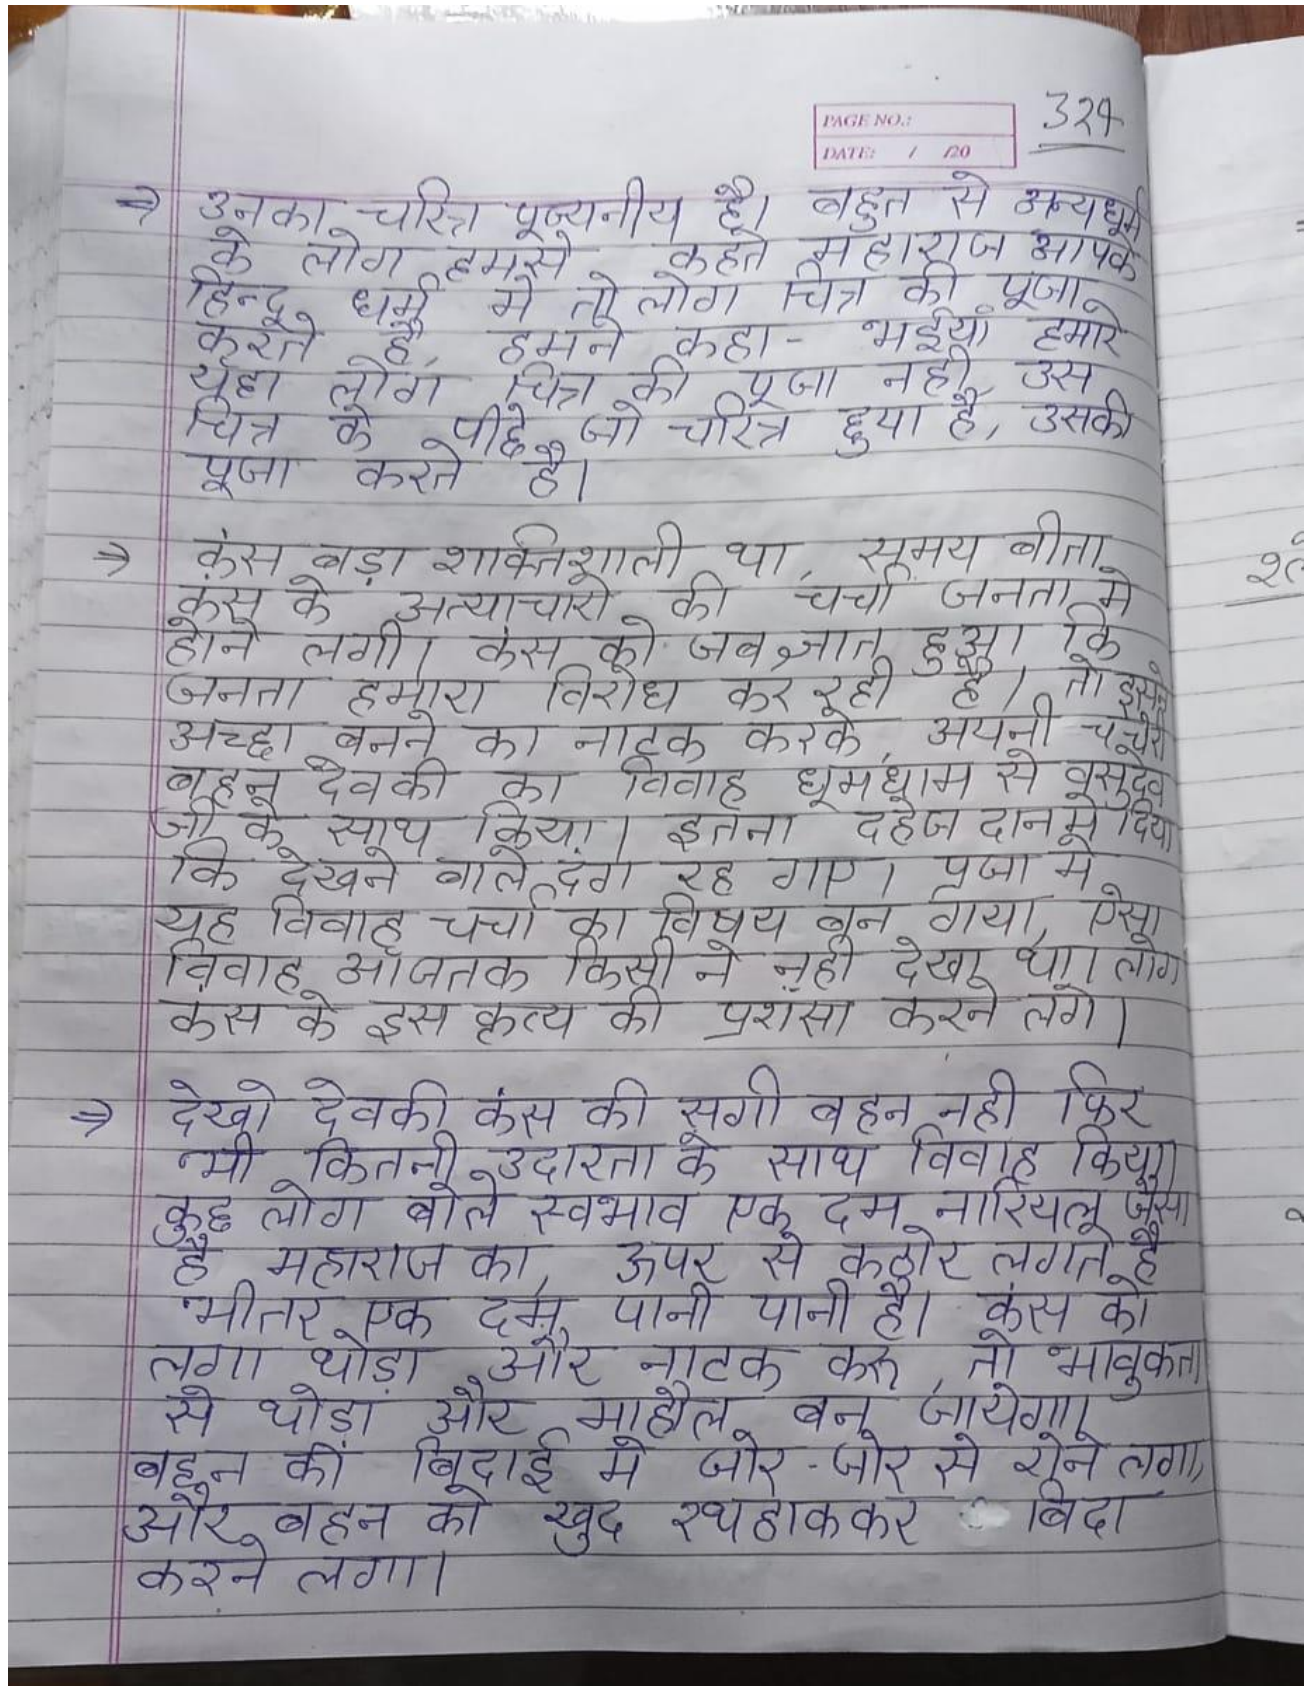 PAGE NO.:
DATE: / /20
329
⇒ उनका चरित्र पूज्यनीय है। बहुत से अन्यधर्म
के लोग हमसे कहते महाराज आपके
हिन्दू धर्म मे तो लोग चित्र की पूजा
करते है, हमने कहा - भईयां हमारे
यहां लोग चित्र की पूजा नही, उस
चित्र के पीछे जो चरित्र हुया है, उसकी
पूजा करते है।
⇒ कंस बड़ा शाक्तिशाली था, समय बीता
कंस के अत्याचारो की चर्चा जनता मे
होने लगी। कंस को जब ज्ञात हुआ कि
जनता हमारा विरोध कर रही है। तो इसने
अच्छा बनने का नाटक करके, अपनी चचेरी
बहन देवकी का विवाह धूमधाम से वसुदेव
जी के साथ किया। इतना दहेज दान मे दिया
कि देखने वाले दंग रह गए। प्रजा मे
यह विवाह चर्चा का विषय बन गया, ऐसा
विवाह आजतक किसी ने नही देखा था। लोग
कंस के इस कृत्य की प्रशंसा करने लगे।
⇒ देखो देवकी कंस की सगी बहन नही फिर
भी कितनी उदारता के साथ विवाह किया।
कुछ लोग बोले स्वभाव एक दम नारियल जैसा
है महाराज का, ऊपर से कठोर लगते है
भीतर एक दम पानी पानी है। कंस को
लगा थोड़ा और नाटक करू, तो भावुकता
से थोड़ा और माहौल बन जायेगा।
बहन की बिदाई मे जोर-जोर से रोने लगा,
और बहन को खुद रथ हाककर बिदा
करने लगा।